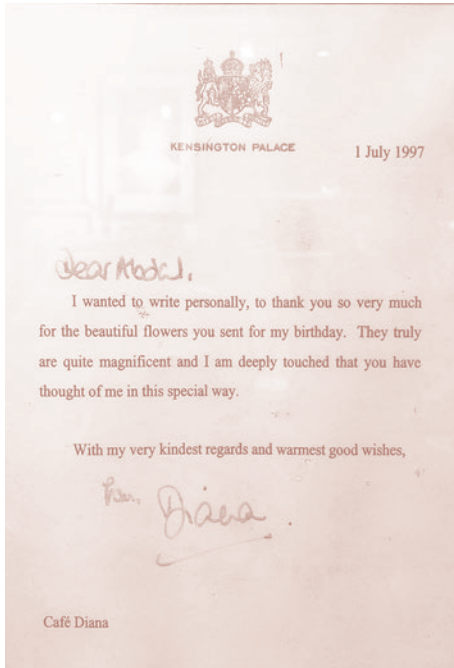 KENSINGTON PALACE
1 July 1997
Dear Abdul,
I wanted to write personally, to thank you so very much
for the beautiful flowers you sent for my birthday. They truly
are quite magnificent and I am deeply touched that you have
thought of me in this special way.
With my very kindest regards and warmest good wishes,
from, Diana.
Café Diana